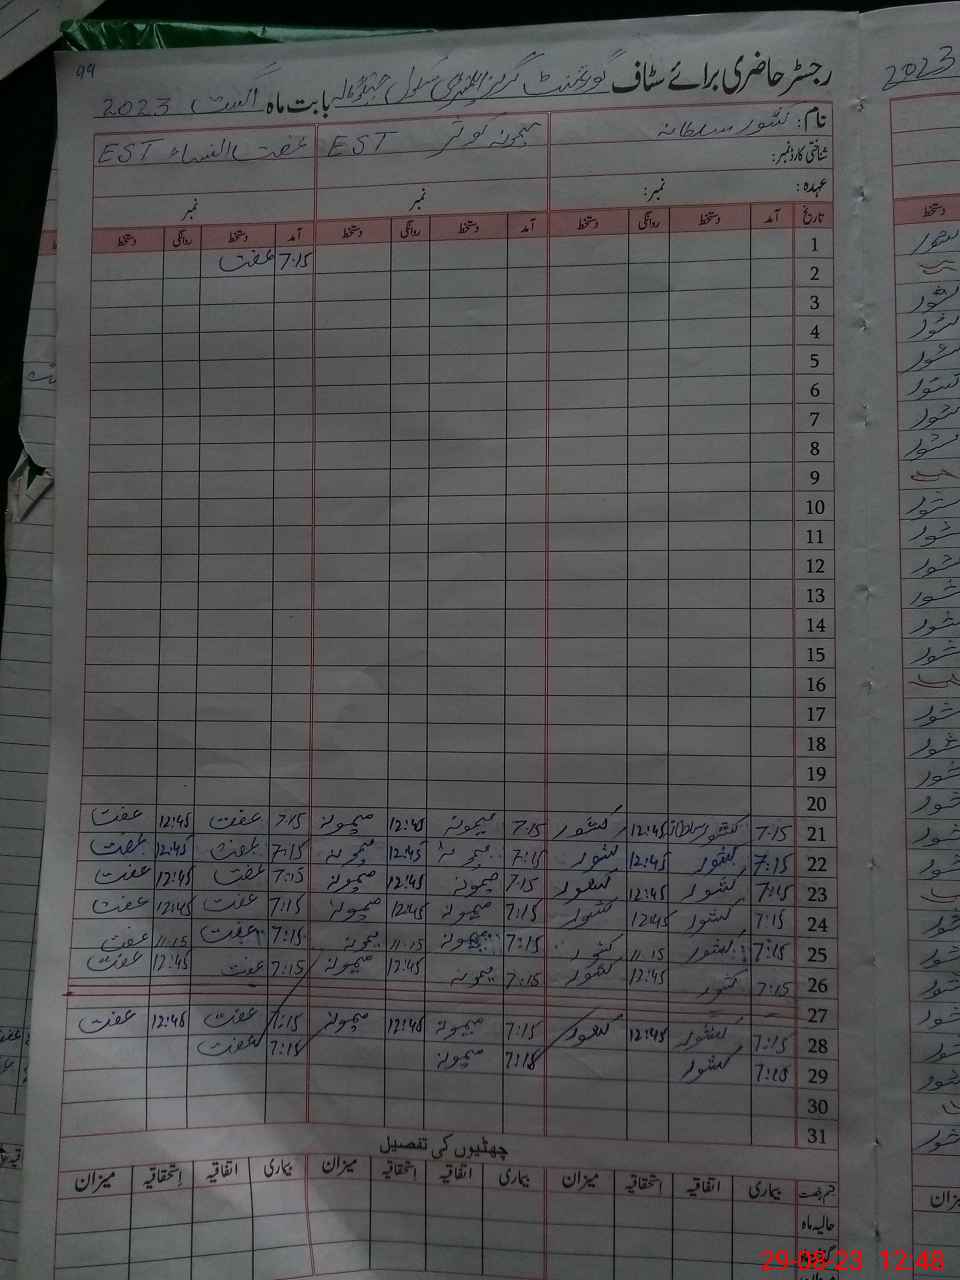 99
رجسٹر حاضری برائے سٹاف گورنمنٹ گرلز ایلیمنٹری سکول بابت ماہ اگست 2023
2023
نام: کشور سلطانہ میمونہ کوثر EST عفت النساء EST
شناختی کارڈ نمبر:
عہدہ: نمبر: نمبر نمبر
تاریخ آمد دستخط روانگی دستخط آمد دستخط روانگی دستخط آمد دستخط روانگی دستخط
1 7:15 عفت
2
3
4
5
6
7
8
9
10
11
12
13
14
15
16
17
18
19
20
21 7:15 کشور سلطانہ 12:45 کشور 7:15 میمونہ 12:45 میمونہ 7:15 عفت 12:45 عفت
22 7:15 کشور 12:45 کشور 7:15 میمونہ 12:45 میمونہ 7:15 عفت 12:45 عفت
23 7:15 کشور 12:45 کشور 7:15 میمونہ 12:45 میمونہ 7:15 عفت 12:45 عفت
24 7:15 کشور 12:45 کشور 7:15 میمونہ 12:45 میمونہ 7:15 عفت 12:45 عفت
25 7:15 کشور 11:15 کشور 7:15 میمونہ 11:15 میمونہ 7:15 عفت 11:15 عفت
26 7:15 کشور 12:45 کشور 7:15 میمونہ 12:45 میمونہ 7:15 عفت 12:45 عفت
27
28 7:15 کشور 12:45 کشور 7:15 میمونہ 12:45 میمونہ 7:15 عفت 12:45 عفت
29 7:15 کشور 7:15 میمونہ 7:15 عفت
30
31
چھٹیوں کی تفصیل
قسم رخصت بیماری اتفاقیہ استحقاقیہ میزان بیماری اتفاقیہ استحقاقیہ میزان بیماری اتفاقیہ استحقاقیہ میزان
حالیہ ماہ
29-08-23 12:48